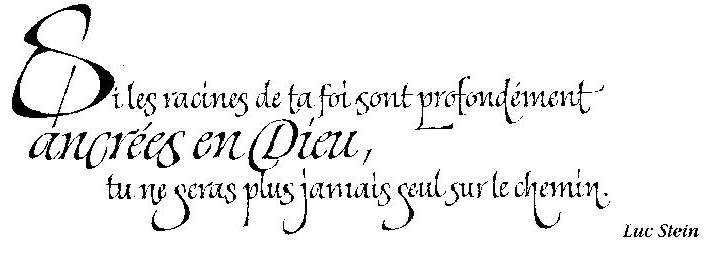 Si les racines de ta foi sont profondément
ancrées en Dieu,
tu ne seras plus jamais seul sur le chemin.
Luc Stein